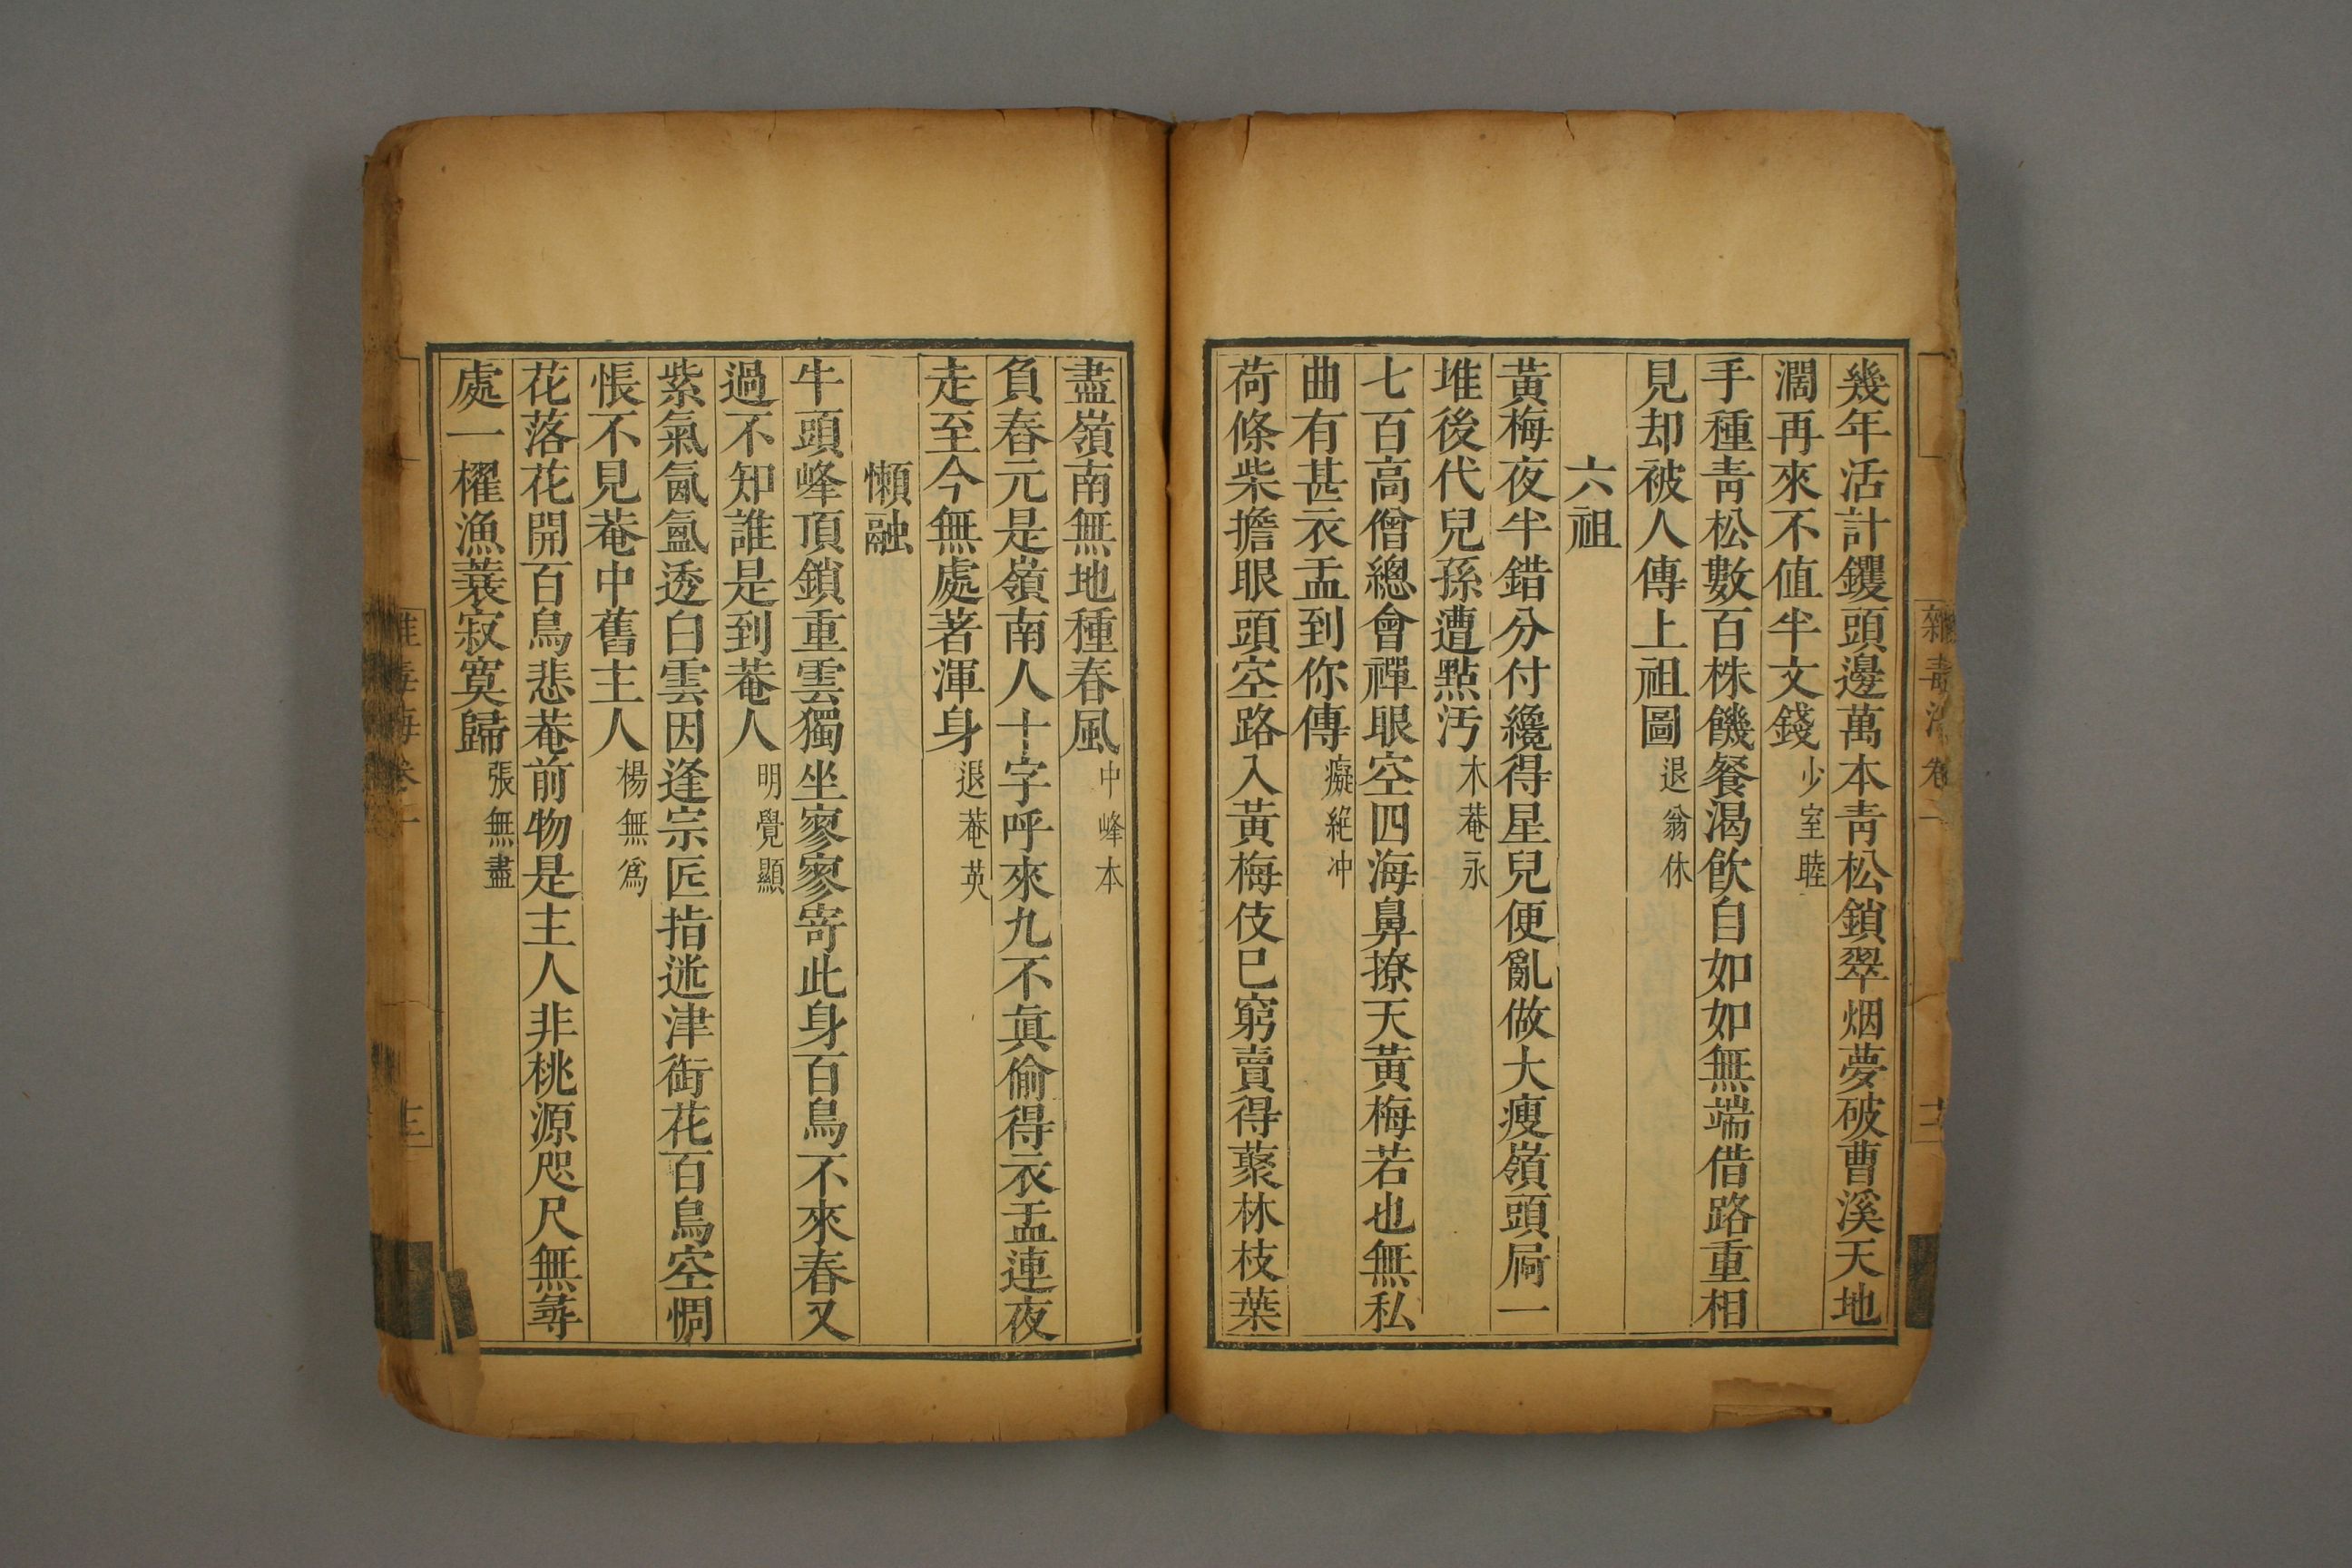 幾年活計钁頭邊萬本靑松鎖翠烟夢破曹溪天地
濶再來不值半文錢少室睦
手種靑松數百株饑餐渴飮自如如無端借路重相
見却被人傳上祖圖退翁休
六祖
黃梅夜半錯分付纔得星兒便亂做大庾嶺頭屙一
堆後代兒孫遭點汚木菴永
七百高僧總會禪眼空四海鼻撩天黃梅若也無私
曲有甚衣盂到你傳癡絕冲
荷條柴擔眼頭空路入黃梅伎已窮賣得藂林枝葉
盡嶺南無地種春風中峰本
負舂元是嶺南人十字呼來九不眞偷得衣盂連夜
走至今無處著渾身退菴英
懶融
牛頭峰頂鎖重雲獨坐寥寥寄此身百鳥不來春又
過不知誰是到菴人明覺顯
紫氣氤氳透白雲因逢宗匠指迷津銜花百鳥空惆
悵不見菴中舊主人楊無爲
花落花開百鳥悲菴前物是主人非桃源咫尺無尋
處一櫂漁蓑寂寞歸張無盡
雜毒海卷一